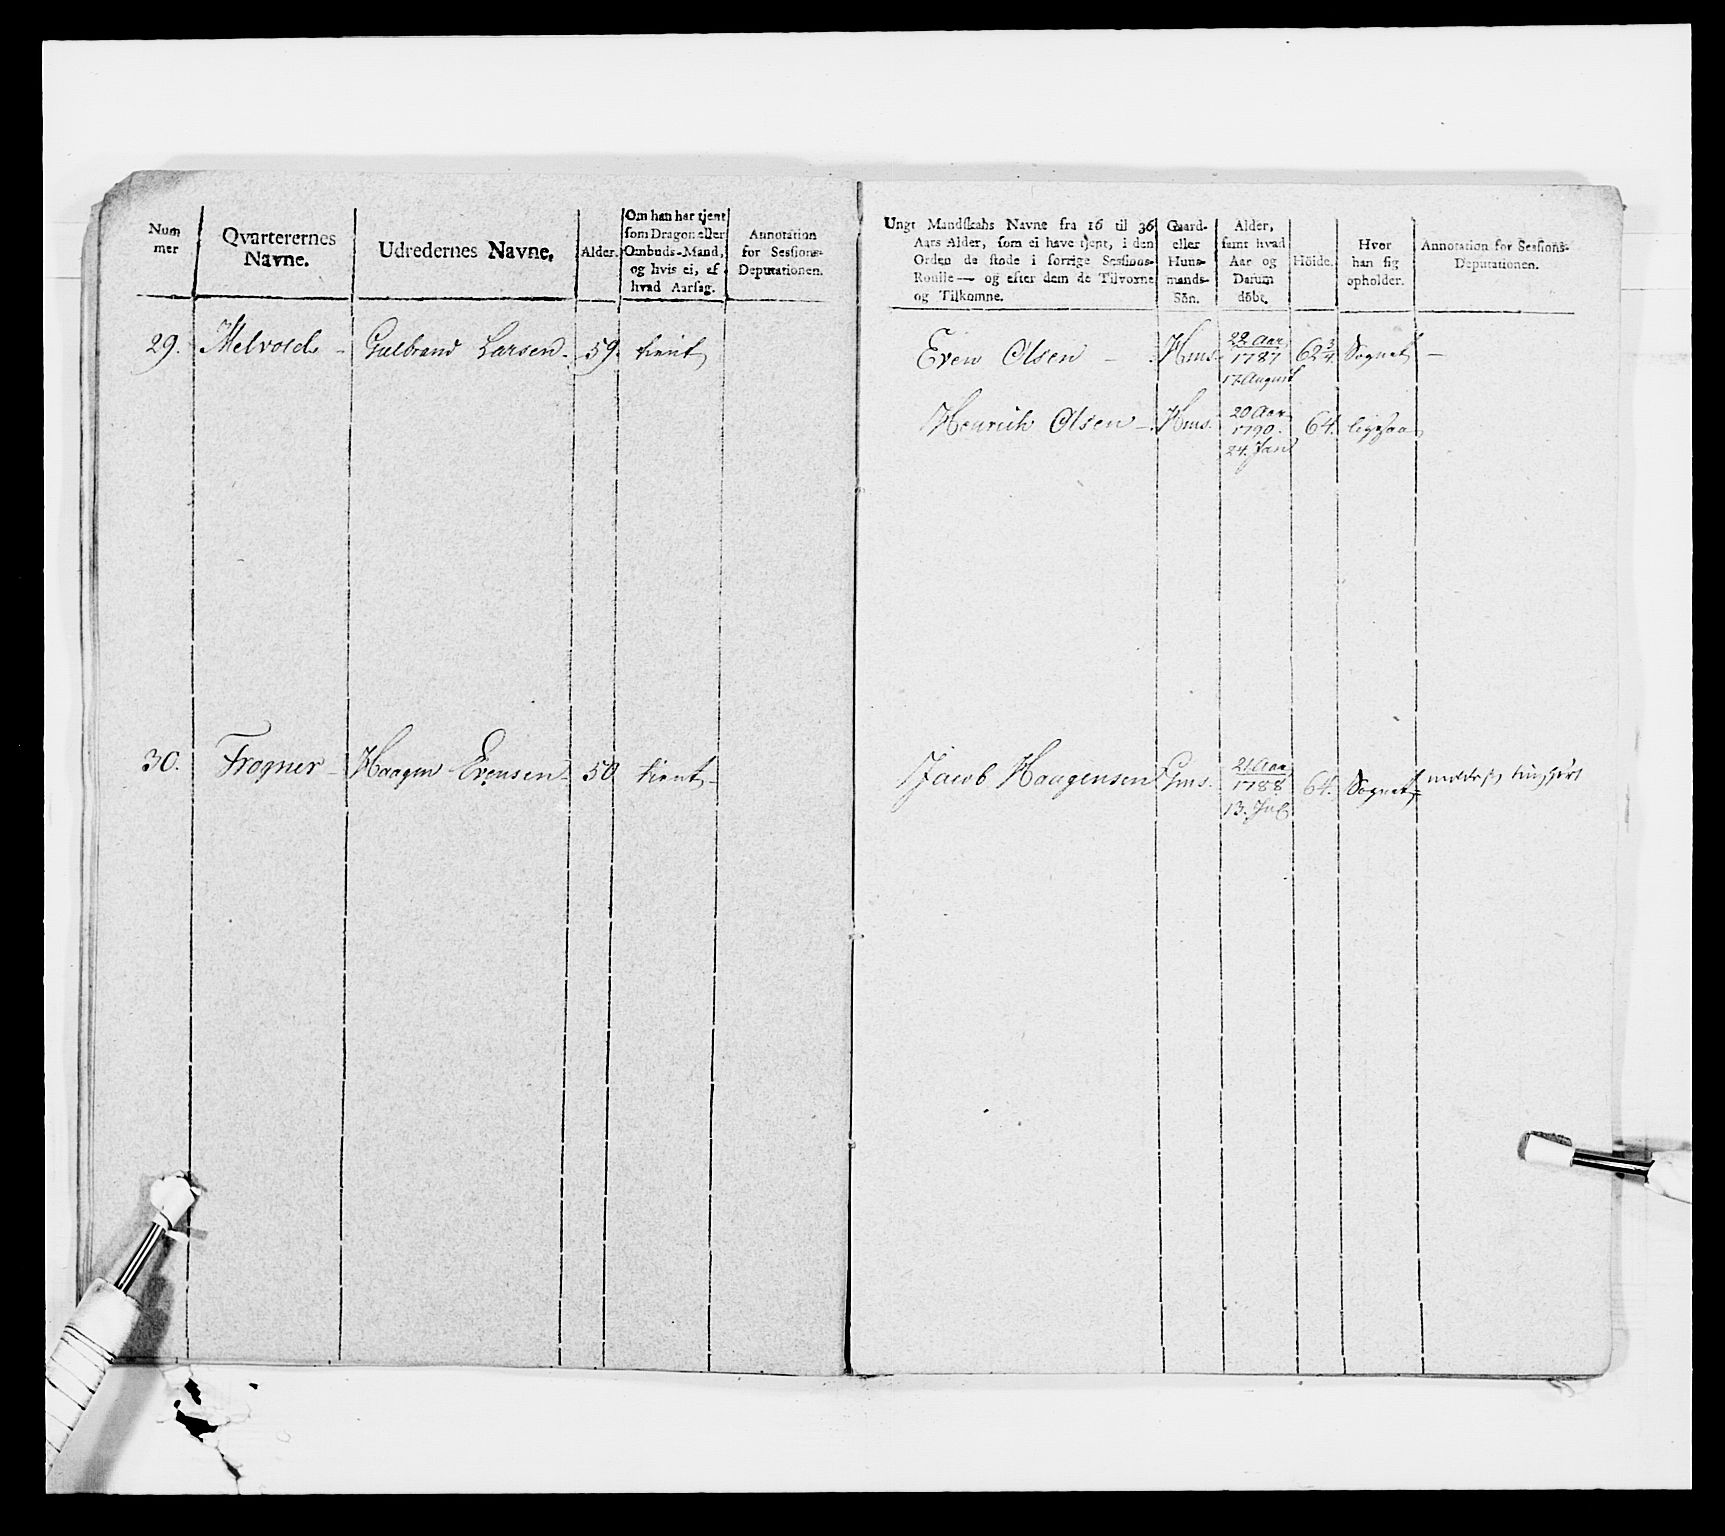 Num
mer
Qvarterernes
Navne.
Udredernes Navne.
Alder.
Om han har tjent
som Dragon eller
Ombuds-Mand,
og hvis ei, af
hvad Aarsag.
Annotation
for Sessions-
Deputationen.
29. Melvold - Gulbrand Larsen. 59. tient
30. Frogner - Haagen Evensen - 50 tient -
Ungt Mandskabs Navne fra 16 til 36
Aars Alder, som ei have tjent, i den
Orden de stode i forrige Sessions-
Roulle — og efter dem de Tilvoxne
og Tilkomne.
Gaard-
eller
Huus-
mands-
Sön.
Alder,
samt hvad
Aar og
Datum
döbt.
Höide.
Hvor
han sig
opholder.
Annotation for Sessions-
Deputationen.
Even Olsen - Hms. 22 Aar 62 3/4. Sognet -
1787
17. August
Henrich Olsen - Hms. 20 Aar 64. ligesaa
1790.
24. Jan
Jacob Haagensen Gms. 21 Aar 64. Sognet
1788
13. Jul